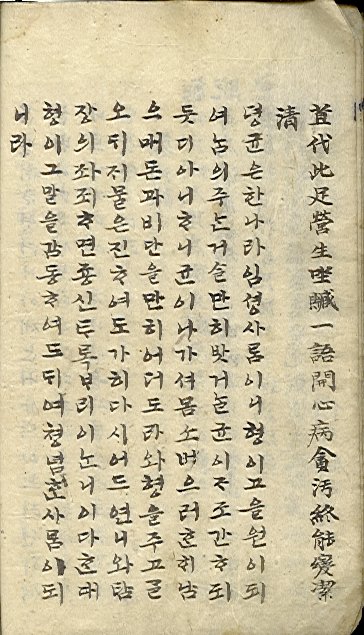 代此足營生坐贓一語開心病貪汚終能變潔
清
뎡균은한나라임셩사ᄅᆞᆷ이니형이고을원이되
여ᄂᆞᆷ의주ᄂᆞᆫ거슬만히밧거ᄂᆞᆯ균이ᄌᆞ조간ᄒᆞ되
듯디아니ᄒᆞ니균이나가셔몸소버으러ᄒᆞᆫᄒᆡ남
으매돈과비단을만히어더도라와형을주고ᄀᆞᆯ
오ᄃᆡ저물은진ᄒᆞ여도가히다시어드련니와탐
장의좌죄ᄒᆞ면죵신토록ᄇᆞ리이ᄂᆞ니이다ᄒᆞᆫ대
형이그말을감동ᄒᆞ여드듸여쳥념ᄒᆞᆫ사ᄅᆞᆷ이되
니라